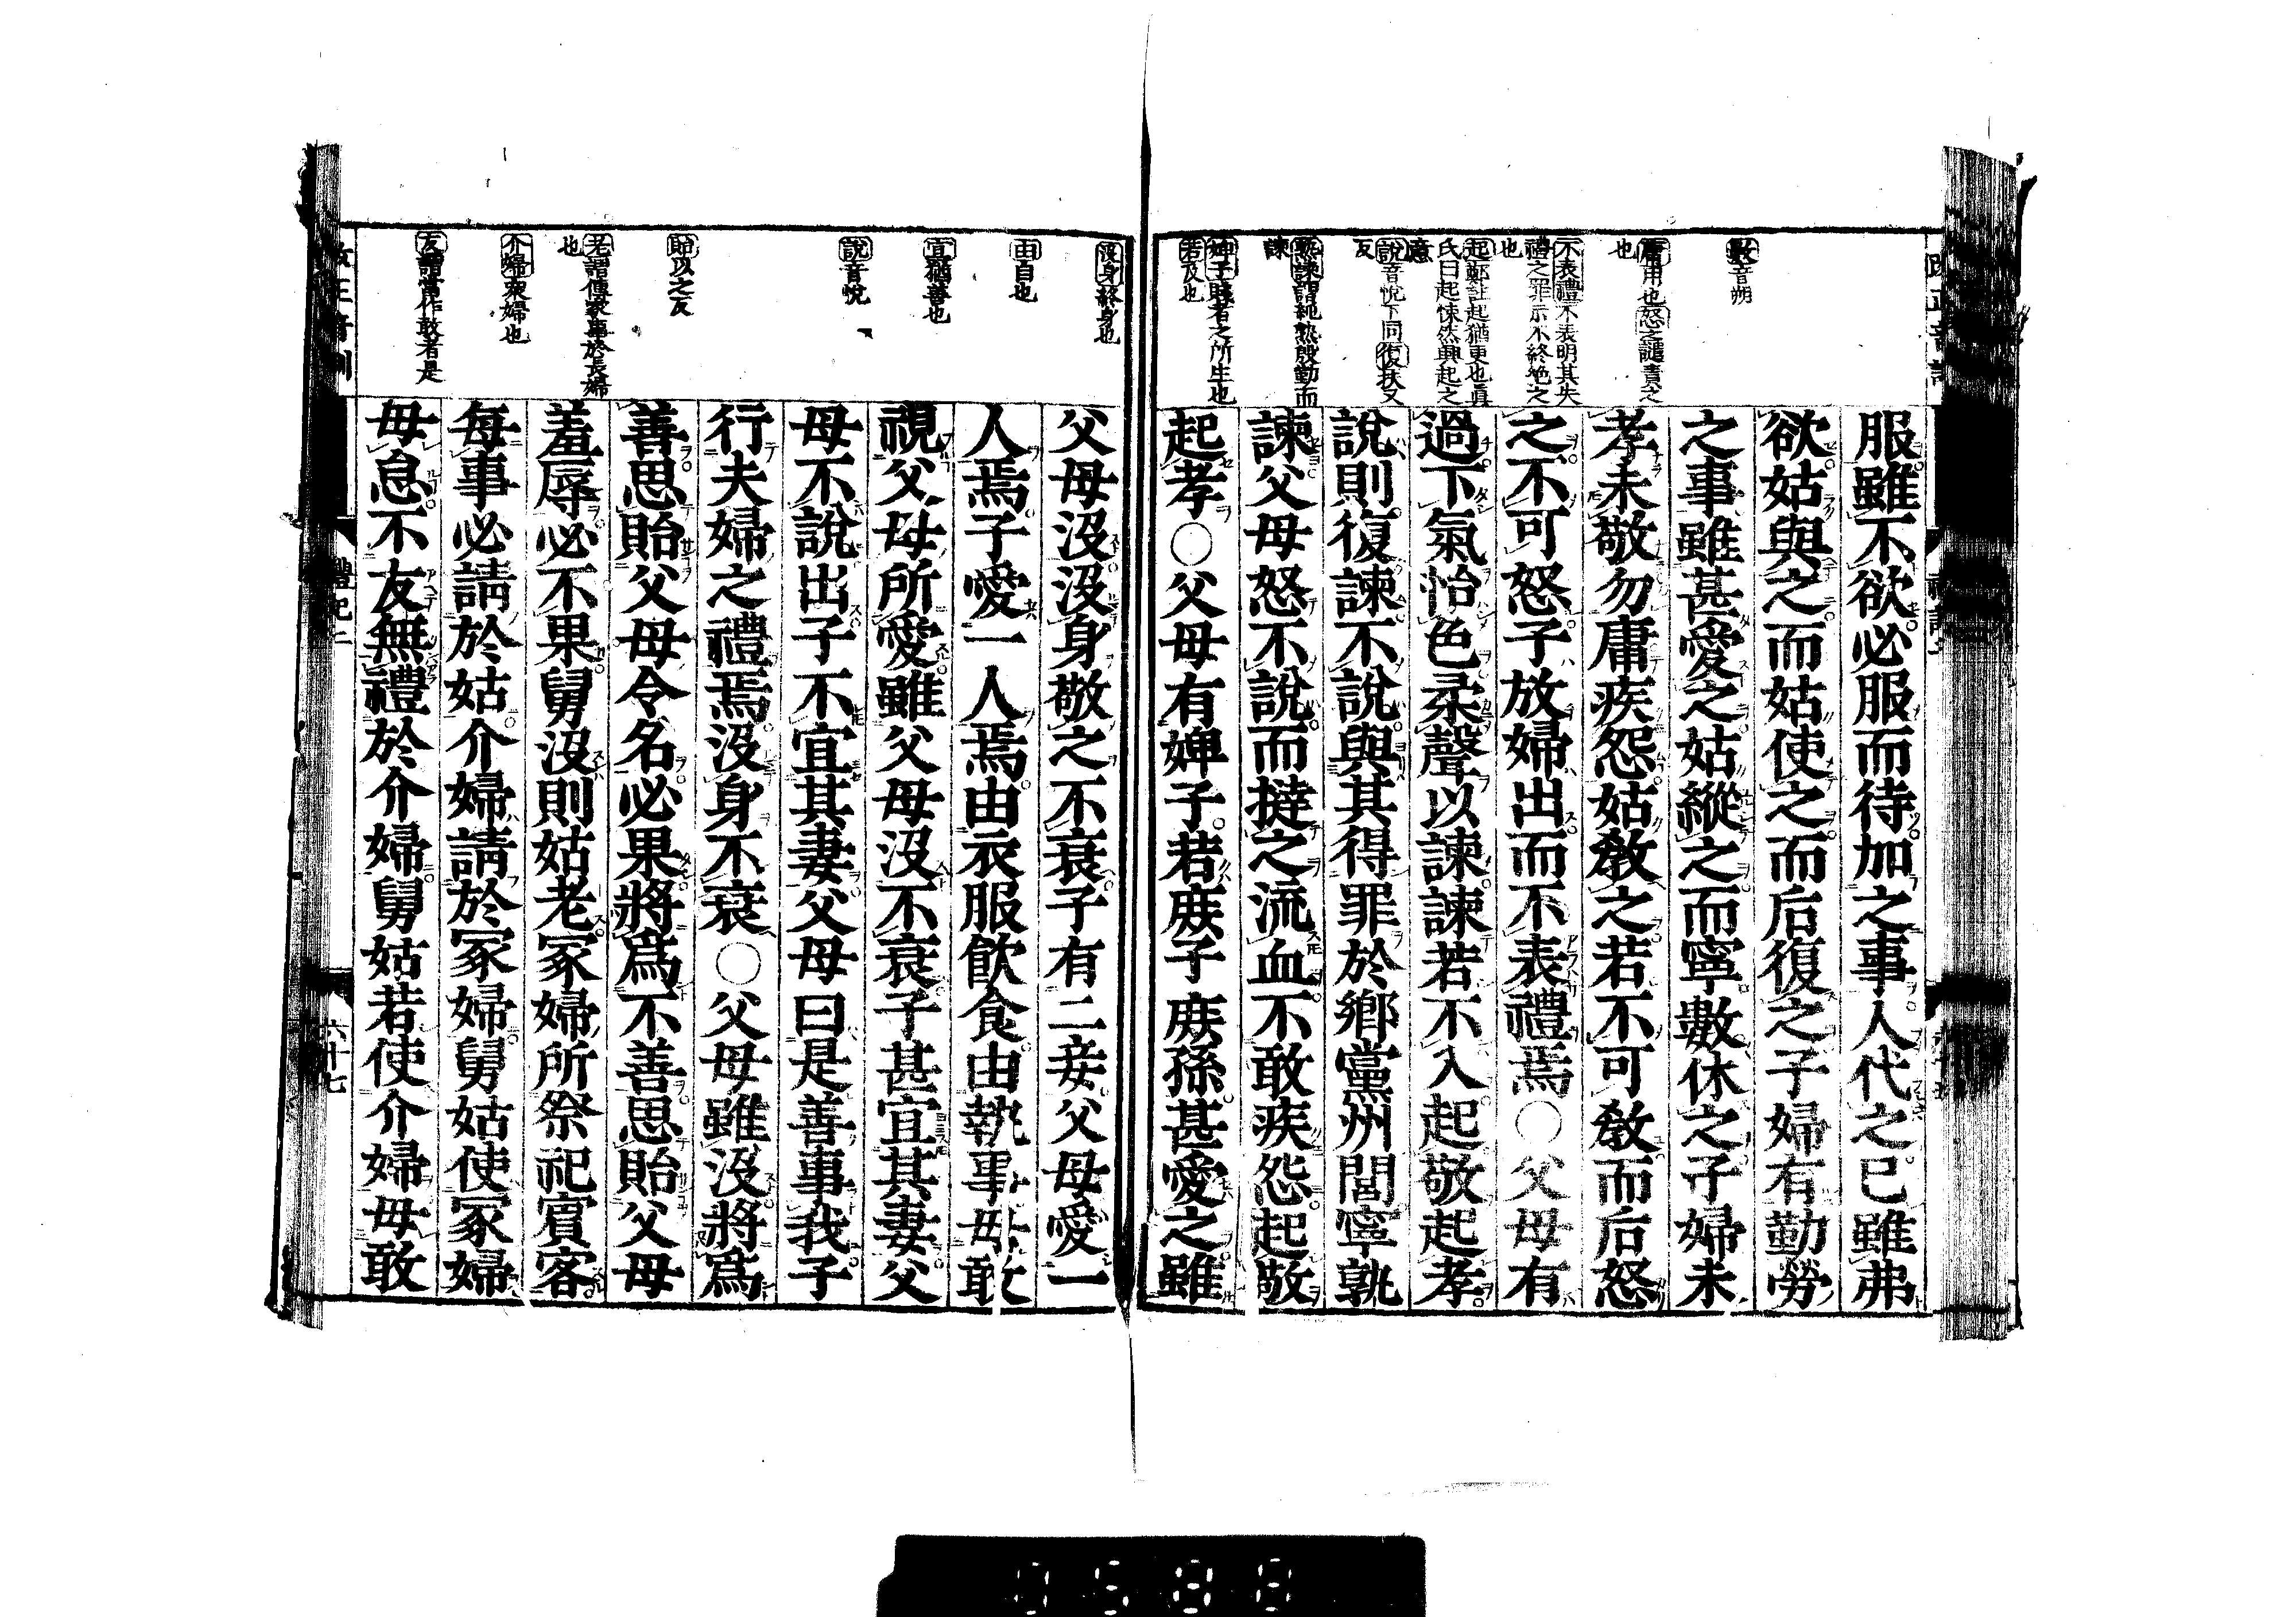 數音朔
庸用也怒之譴責之
也
不表禮不表明其失
禮之罪示不終絶之
也
起鄭註起猶更也眞
氏曰起悚然興起之
意
說音悅下同復扶又
反
熟諫謂純熟殷勤而
諫
婢子賤者之所生也
若及也
服雖不欲必服而待加之事人代之己雖弗
欲姑與之而姑使之而后復之子婦有勤勞
之事雖甚愛之姑縱之而寧數休之子婦未
孝未敬勿庸疾怨姑敎之若不可敎而后怒
之不可怒子放婦出而不表禮焉○父母有
過下氣怡色柔聲以諫諫若不入起敬起孝
說則復諫不說與其得罪於鄕黨州閭寧孰
諫父母怒不說而撻之流血不敢疾怨起敬
起孝○父母有婢子若庶子庶孫甚愛之雖
沒身終身也
由自也
宜猶善也
說音悅
貽以之反
老謂傳家事於長婦
也
介婦衆婦也
友謂當作敢者是
父母沒沒身敬之不衰子有二妾父母愛一
人焉子愛一人焉由衣服飮食由執事毋敢
視父母所愛雖父母沒不衰子甚宜其妻父
母不說出子不宜其妻父母曰是善事我子
行夫婦之禮焉沒身不衰○父母雖沒將爲
善思貽父母令名必果將爲不善思貽父母
羞辱必不果舅沒則姑老冢婦所祭祀賓客
每事必請於姑介婦請於冢婦舅姑使冢婦
毋怠不友無禮於介婦舅姑若使介婦毋敢
禮記二
六十七
0588